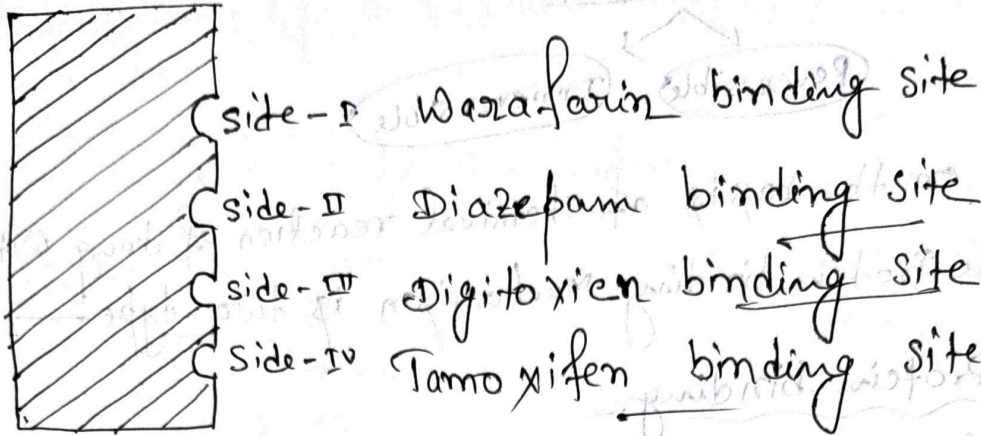 side-I Warafarin binding site
side-II Diazepam binding site
side-III Digitoxien binding site
Side-IV Tamoxifen binding site